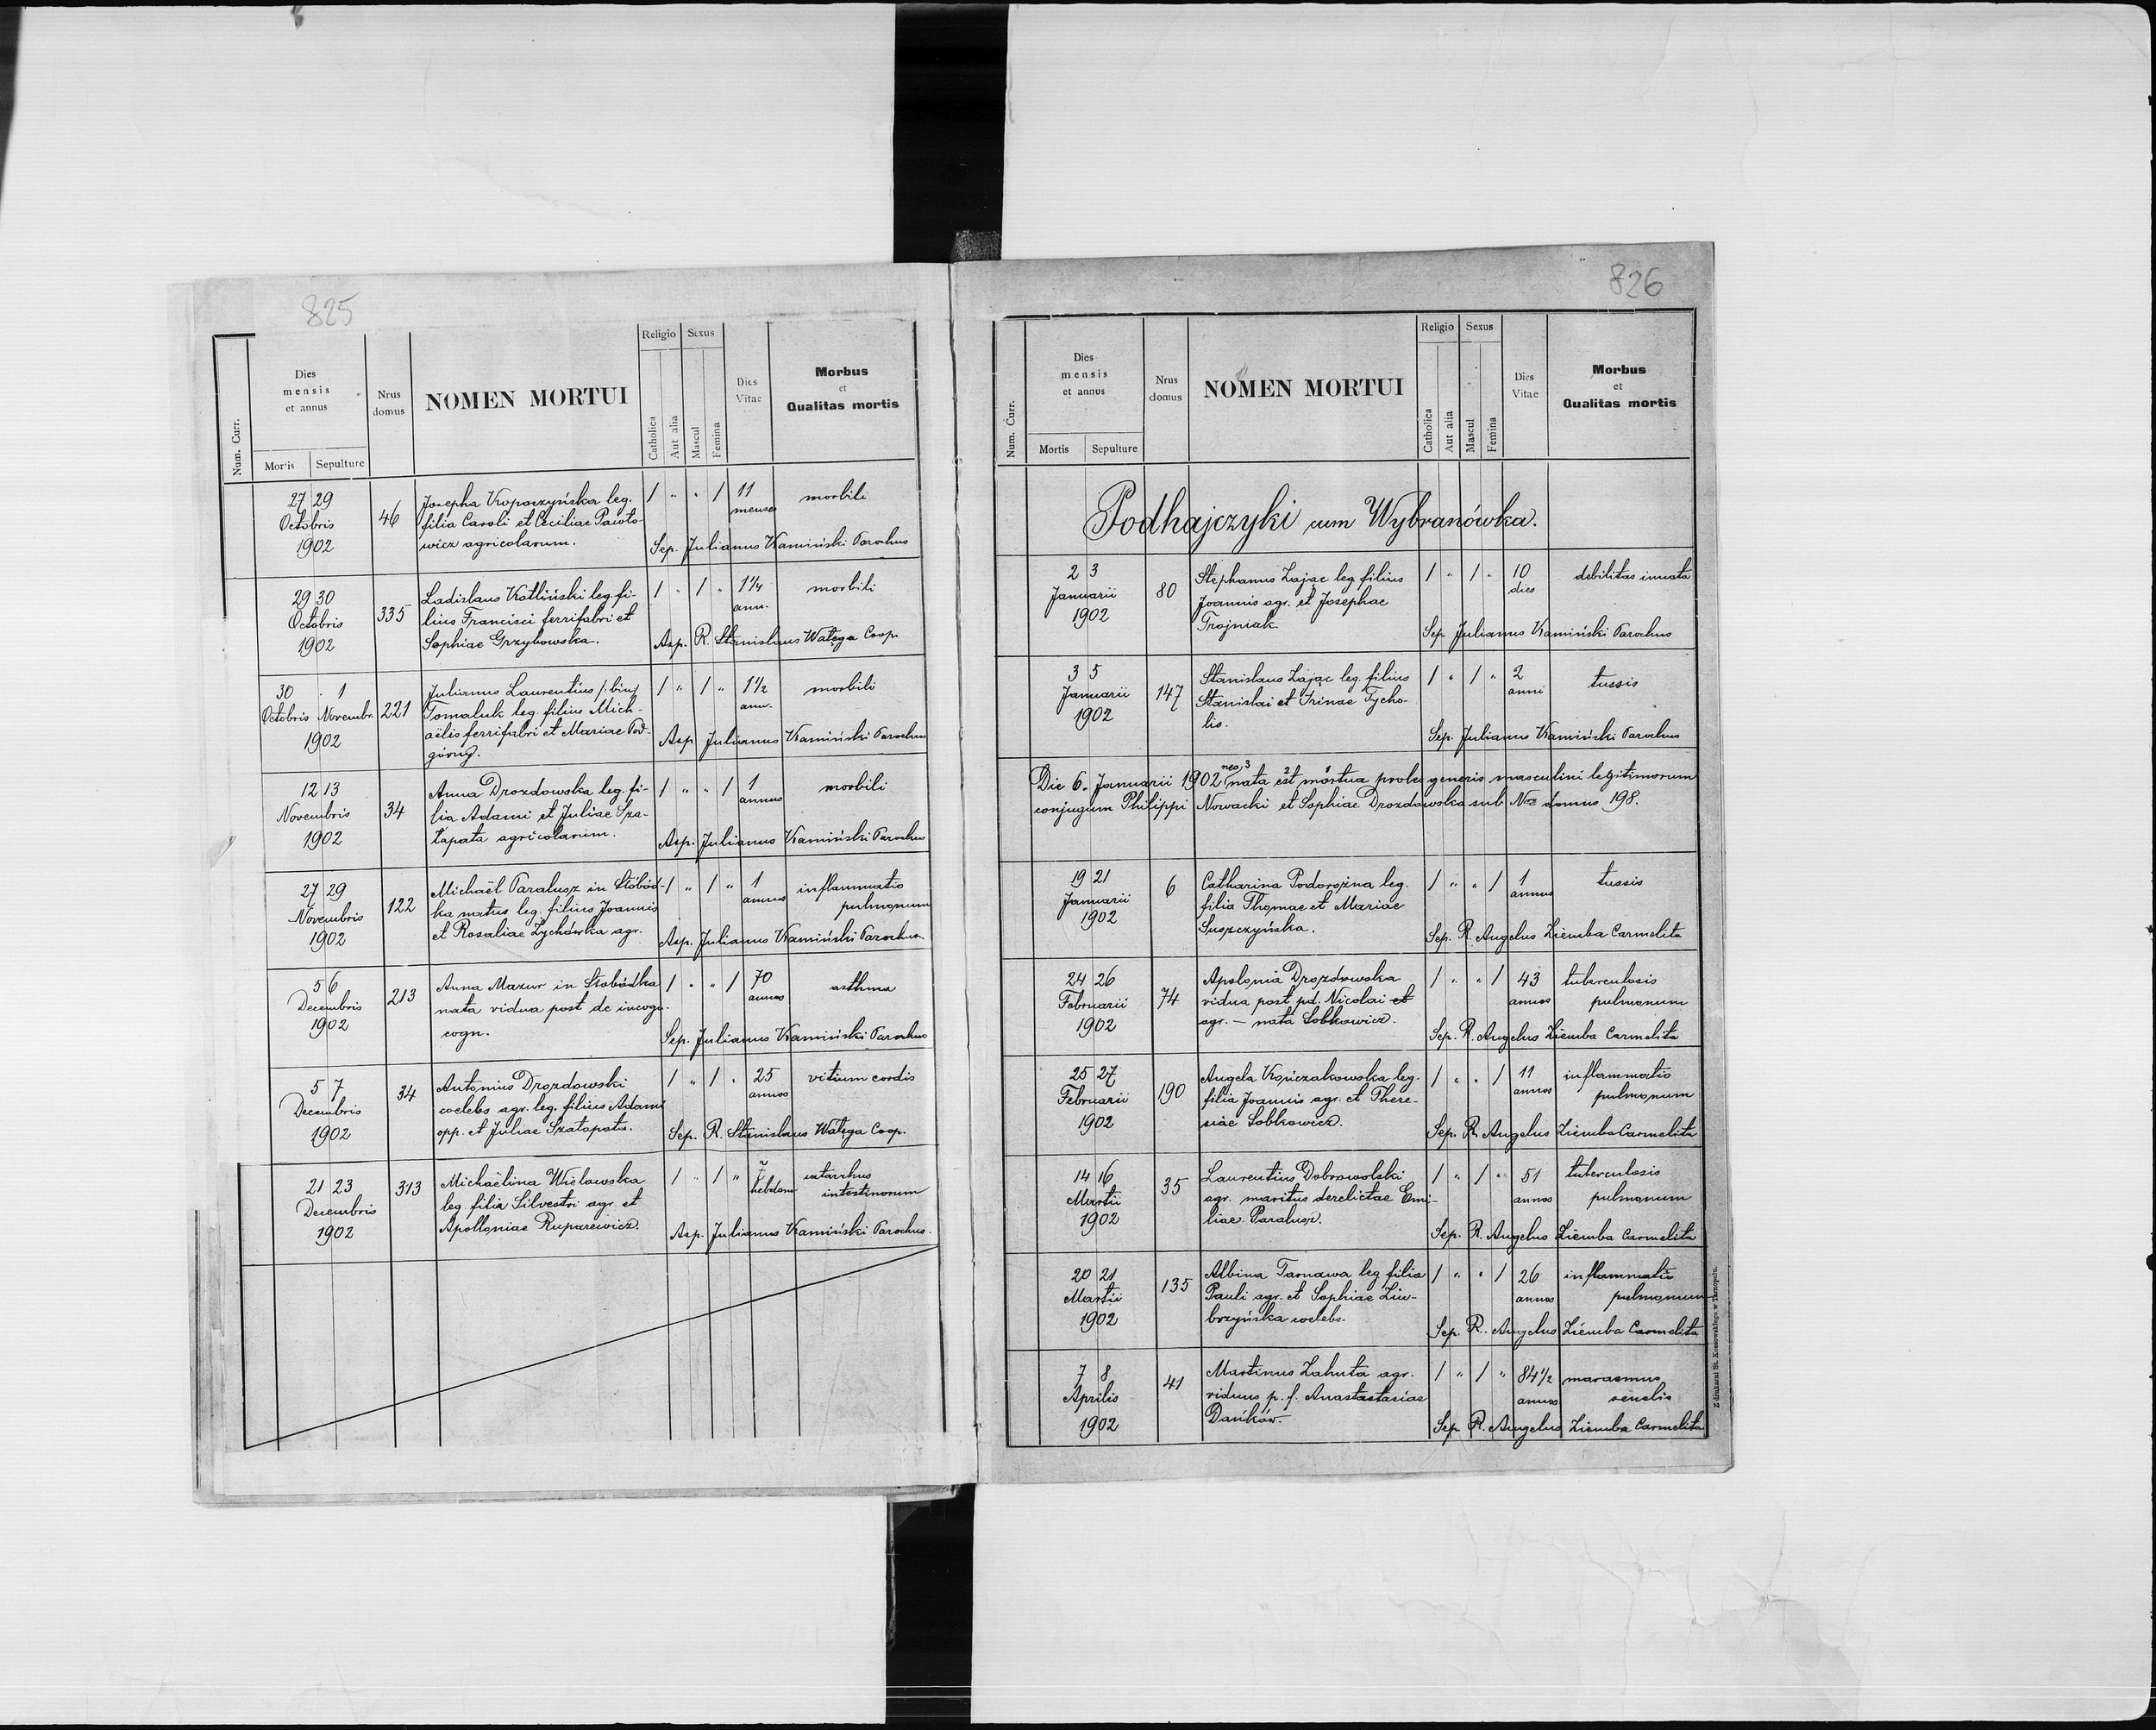 825
Num. Curr.
Dies mensis et annus
Mortis Sepulture
Nrus domus
NOMEN MORTUI
Religio
Catholica
Aut alia
Sexus
Mascul
Femina
Dies Vitae
Morbus et Qualitas mortis
27 29 46 Josepha Kopaczyńska leg. / " " / 11 morbili
Octobris filia Caroli et Ceciliae Pawło- menses
1902 wicz agricolarum. Sep. Julianus Kamiński Parochus
29 30 335 Ladislaus Kotliński leg. fi- / " / " 1 1/4 morbili
Octobris lius Francisci ferrifabri et ann.
1902 Sophiae Grzybowska. Asp. R. Stanislaus Watęga Coop.
30 1 221 Julianus Laurentius /: bin / " / " 1 1/2 morbili
Octobris Novembr. Tomaluk leg. filius Mich- ann.
1902 aëlis ferrifabri et Mariae Pod- Asp. Julianus Kamiński Parochus
górny.
12 13 34 Anna Drozdowska leg. fi- / " " / 1 morbili
Novembris lia Adami et Juliae Sza- annus
1902 łapata agricolarum. Asp. Julianus Kamiński Parochus
27 29 122 Michaël Paralusz in Słobód- / " / " 1 inflammatio
Novembris ka natus leg. filius Joannis annus pulmonum
1902 et Rosaliae Zychówka agr. Asp. Julianus Kamiński Parochus
5 6 213 Anna Mazur in Słobódka / " " / 70 asthma
Decembris nata vidua post de incogn. annos
1902 cogn. Sep. Julianus Kamiński Parochus
5 7 34 Antonius Drozdowski / " / " 25 vitium cordis
Decembris coelebs agr. leg. filius Adami annos
1902 opp. et Juliae Szałapata. Sep. R. Stanislaus Watęga Coop.
21 23 313 Michaëlina Wielowska / " / " catarrhus
Decembris leg. filia Silvestri agr. et hebdom intestinorum
1902 Apolloniae Ruparewicz. Asp. Julianus Kamiński Parochus.
826
Num. Curr.
Dies mensis et annus
Mortis Sepulture
Nrus domus
NOMEN MORTUI
Religio
Catholica
Aut alia
Sexus
Mascul
Femina
Dies Vitae
Morbus et Qualitas mortis
Podhajczyki cum Wybranówka.
2 3 80 Stephanus Zając leg. filius / " / " 10 debilitas innata
Januarii Joannis agr. et Josephae dies
1902 Trojniak Sep. Julianus Kamiński Parochus
3 5 147 Stanislaus Zając leg. filius / " / " 2 tussis
Januarii Stanislai et Irinae Tycho- anni
1902 lis. Sep. Julianus Kamiński Parochus
Die 6. Januarii 1902 neo 3 nata 2 est 1 mortua proles generis masculini legitimorum
conjugum Philippi Nowacki et Sophiae Drozdowska sub Nro domus 198.
19 21 6 Catharina Podorożna leg. / " " / 1 tussis
Januarii filia Thomae et Mariae annus
1902 Suszczyńska. Sep. R. Angelus Ziemba Carmelita
24 26 74 Apolonia Drozdowska / " " / 43 tuberculosis
Februarii vidua post pd. Nicolai et annos pulmonum
1902 agr. — nata Sobkowicz. Sep. R. Angelus Ziemba Carmelita
25 27 190 Angela Kończakowska leg. / " " / 11 inflammatio
Februarii filia Joannis agr. et There- annos pulmonum
1902 siae Sobkowicz. Sep. R. Angelus Ziemba Carmelita
14 16 35 Laurentius Dobrowolski / " / " 51 tuberculosis
Martii agr. maritus derelictae Emi- annos pulmonum
1902 liae Paralusz. Sep. R. Angelus Ziemba Carmelita
20 21 135 Albina Tarnawa leg. filia / " " / 26 inflammatio
Martii Pauli agr. et Sophiae Ziem- annos pulmonum
1902 brzyńska coelebs. Sep. R. Angelus Ziemba Carmelita
7 8 41 Martinus Zahuta agr. / " / " 84 1/2 marasmus
Aprilis viduus p. f. Anastastasiae annos senelis
1902 Dańków. Sep. R. Angelus Ziemba Carmelita
Z drukarni St. Kossowskiego w Tarnopolu.